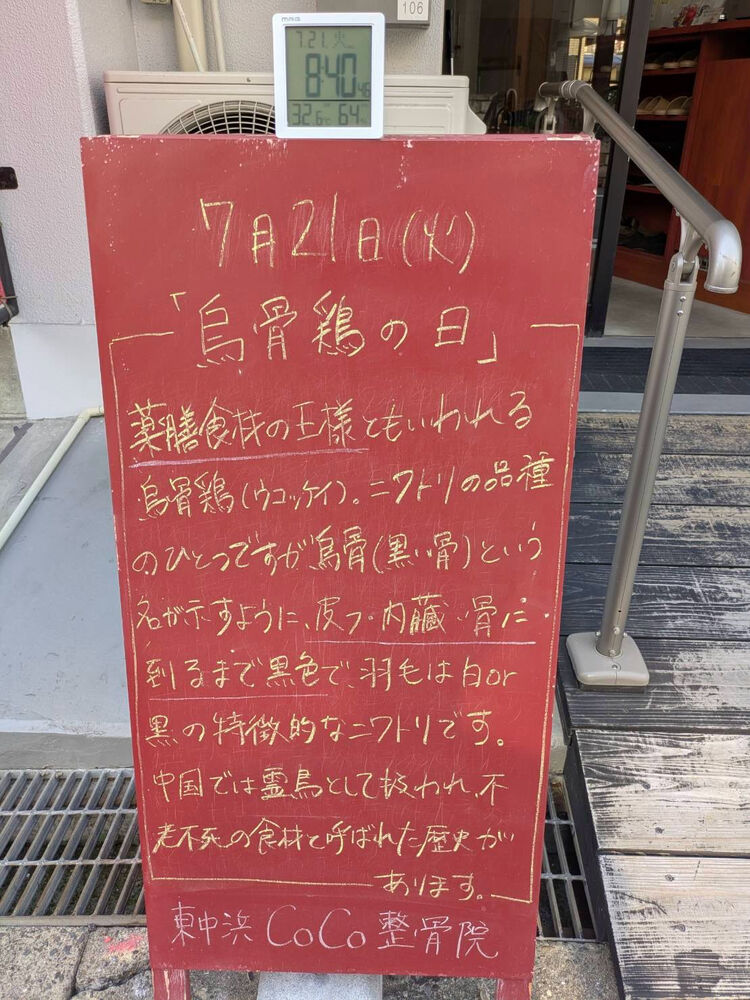 106
MAG
7.21 火
8:40 46
32.6℃ 64%
7月21日(火)
「烏骨鶏の日」
薬膳食材の王様ともいわれる
烏骨鶏(ウコッケイ)。ニワトリの品種
のひとつですが烏骨(黒い骨)という
名が示すように、皮フ・内臓・骨に
到るまで黒色で、羽毛は白or
黒の特徴的なニワトリです。
中国では霊鳥として扱われ、不
老不死の食材と呼ばれた歴史が
あります。
東中浜 CoCo 整骨院